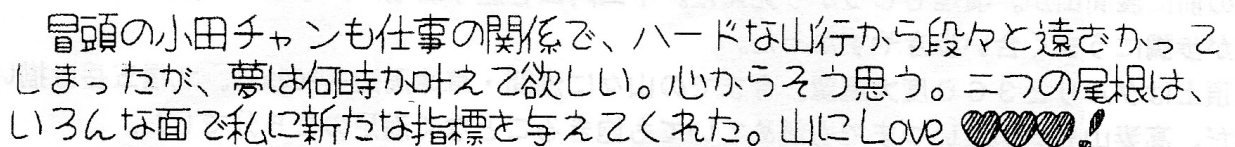 冒頭の小田チャンも仕事の関係で、ハードな山行から段々と遠ざかって
しまったが、夢は何時か叶えて欲しい。心からそう思う。二つの尾根は、
いろんな面で私に新たな指標を与えてくれた。山にLove ♥♥♥!